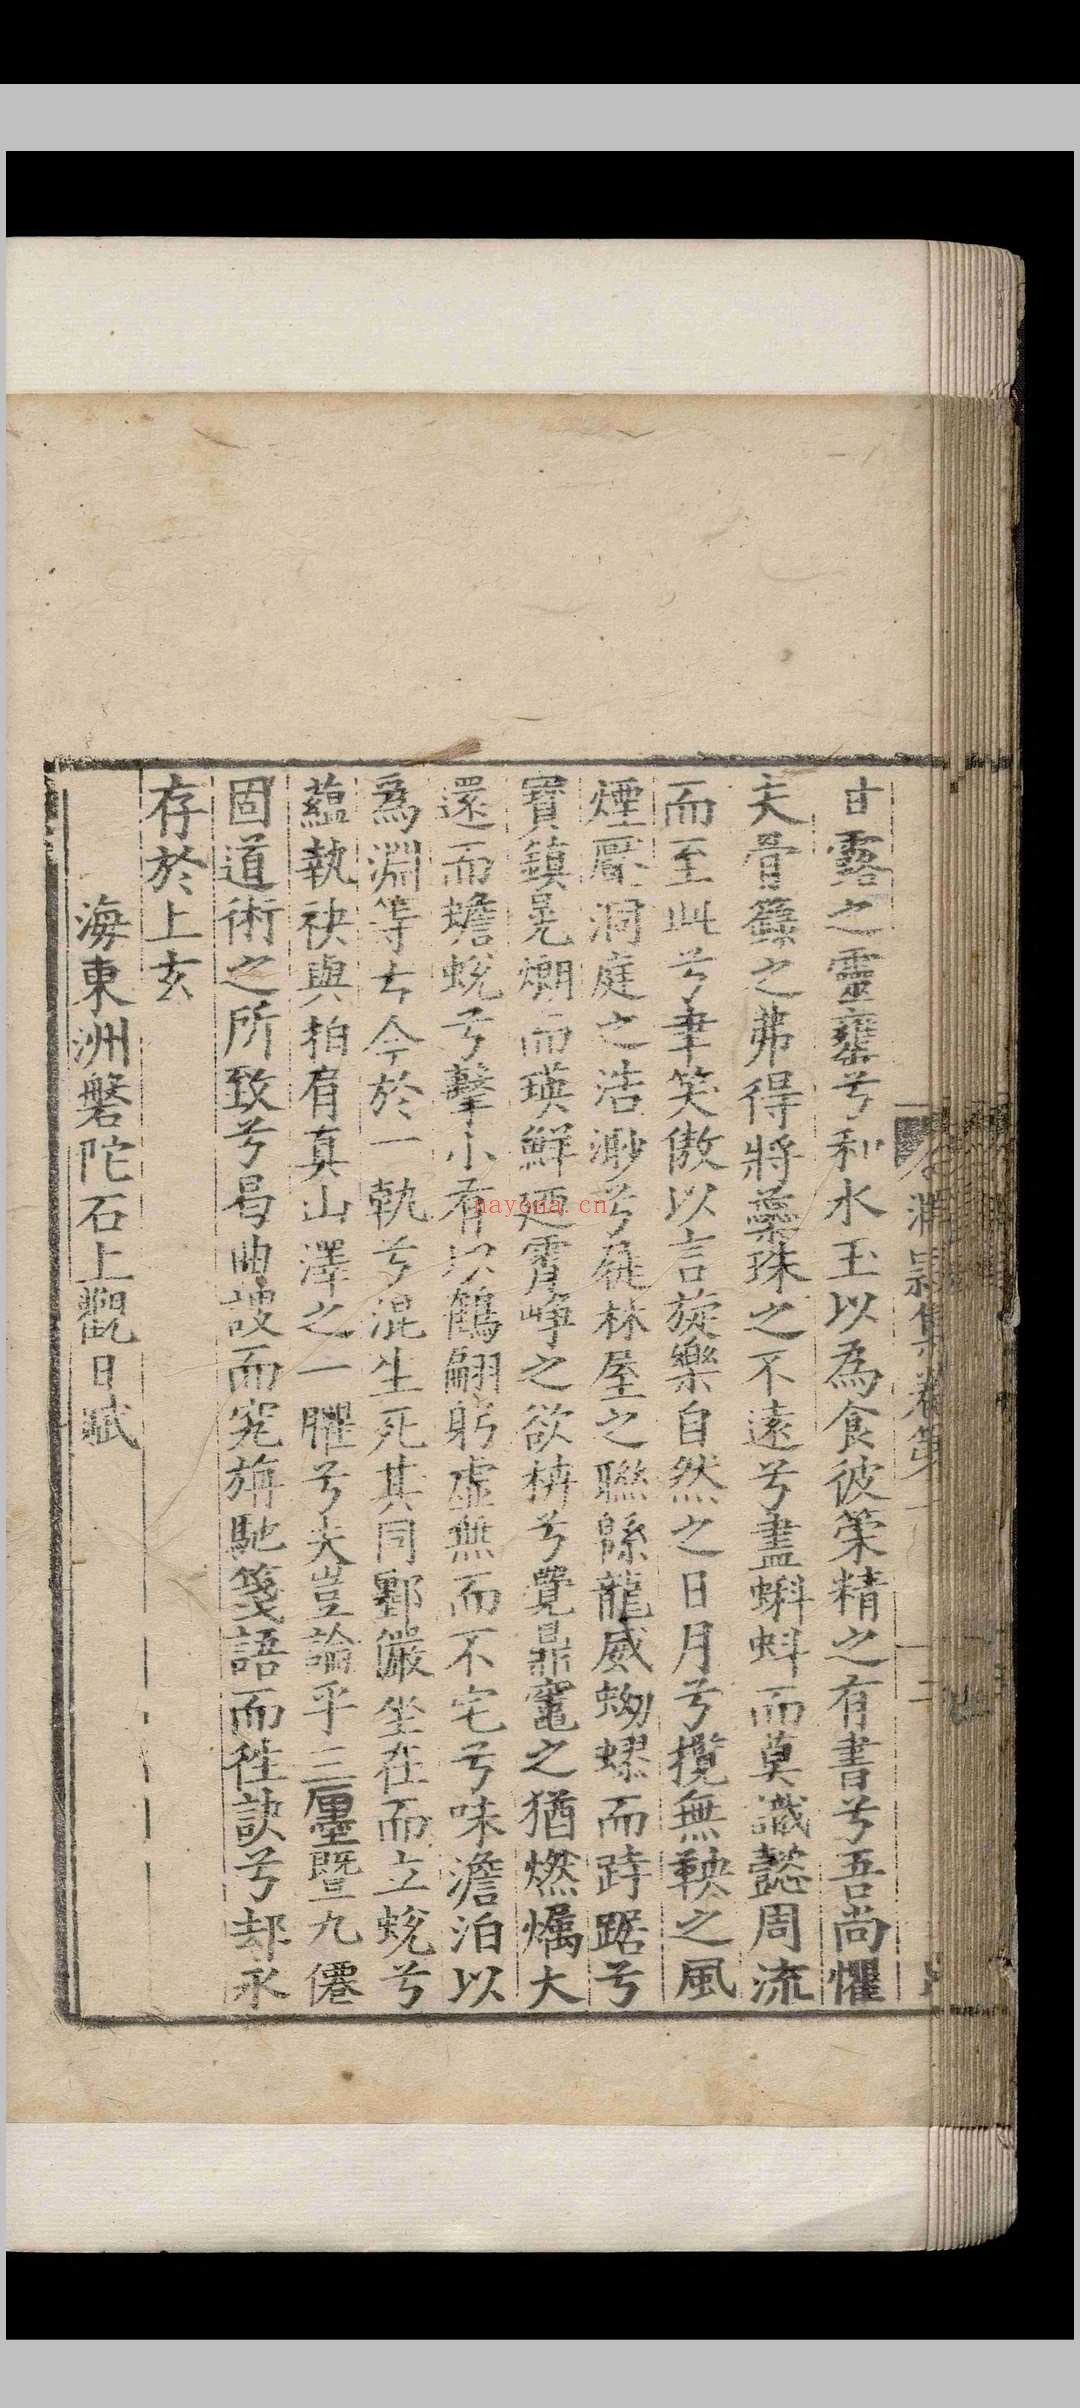 甘露之靈壅兮和水玉以為食彼策精之有書兮吾尚懼
夫骨籙之弗得將蘂珠之不遠兮盡蝌蚪而莫識懿周流
而至此兮聿笑傲以言旋樂自然之日月兮攬無鞅之風
煙壓洞庭之浩渺兮徙林屋之聯緜龍威蚴蟉而跱踞兮
寶鎮晃爓而瑛鮮迺霄崢之欲梼兮覺鼎竈之猶燃爥大
還而蟾蛻兮擊小有以鶴翩躬虛無而不宅兮味澹泊以
爲淵等古今於一軌兮混生死其同鄽儼坐在而立蛻兮
蘊執袂與拍肩真山澤之一臞兮夫豈論乎三壥暨九僊
固道術之所致兮曷曲謏而究旃馳箋語而徃訣兮却永
存於上玄
海東洲磐陀石上觀日賦
淵穎集卷第
nayona.cn